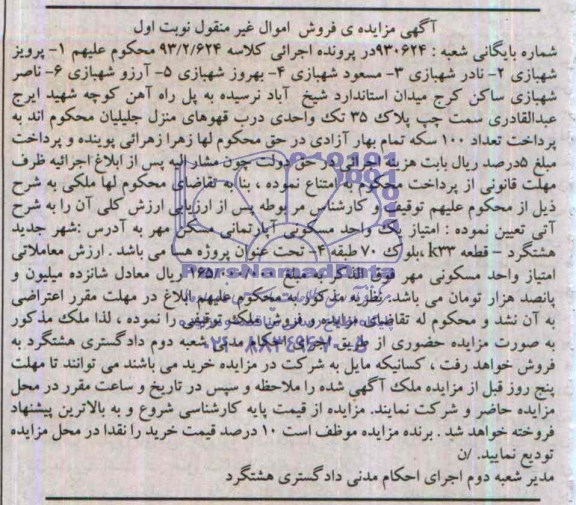 آگهی مزایده ی فروش اموال غیر منقول نوبت اول
شماره بایگانی شعبه : ۹۳۰۶۲۴در پرونده اجرائی کلاسه ۹۳/۲/۶۲۴ محکوم علیهم ۱- پرویز
شهبازی ۲- نادر شهبازی ۳- مسعود شهبازی ۴- بهروز شهبازی ۵- آرزو شهبازی ۶- ناصر
شهبازی ساکن کرج میدان استاندارد شیخ آباد نرسیده به پل راه آهن کوچه شهید ایرج
عبدالقادری سمت چپ پلاک ۳۵ تک واحدی درب قهوهای منزل جلیلیان محکوم اند به
پرداخت تعداد ۱۰۰ سکه تمام بهار آزادی در حق محکوم لها زهرا زهرائی پوینده و پرداخت
مبلغ ۵درصد ریال بابت هزینه در حق دولت چون مشار الیه پس از ابلاغ اجرائیه ظرف
مهلت قانونی از پرداخت محکوم به امتناع نموده ، بنا به تقاضای محکوم لها ملکی به شرح
ذیل از محکوم علیهم توقیف و کارشناس مربوطه پس از ارزیابی ارزش کلی آن را به شرح
آتی تعیین نموده : امتیاز یک واحد مسکونی آپارتمانی مسکن مهر به آدرس :شهر جدید
هشتگرد – قطعه k۳۳ ،بلوک ۷۰ طبقه ۴- تحت عنوان پروژه می باشد . ارزش معاملاتی
امتیاز واحد مسکونی مهر فوق الذکر به مبلغ ریال معادل شانزده میلیون و
پانصد هزار تومان می باشد. نظریه مذکور به محکوم علیهم ابلاغ در مهلت مقرر اعتراضی
به آن نشد و محکوم له تقاضای مزایده و فروش ملک توقیفی را نموده ، لذا ملک مذکور
به صورت مزایده حضوری از طریق اجرای احکام مدنی شعبه دوم دادگستری هشتگرد به
فروش خواهد رفت ، کسانیکه مایل به شرکت در مزایده خرید می باشند می توانند تا مهلت
پنج روز قبل از مزایده ملک آگهی شده را ملاحظه و سپس در تاریخ و ساعت مقرر در محل
مزایده حاضر و شرکت نمایند. مزایده از قیمت پایه کارشناسی شروع و به بالاترین پیشنهاد
فروخته خواهد شد . برنده مزایده موظف است ۱۰ درصد قیمت خرید را نقدا در محل مزایده
تودیع نمایید. /ن
مدیر شعبه دوم اجرای احکام مدنی دادگستری هشتگرد
ParsNamadData
۰۲۱-۸۸۳۴۹۶۷۰-۵